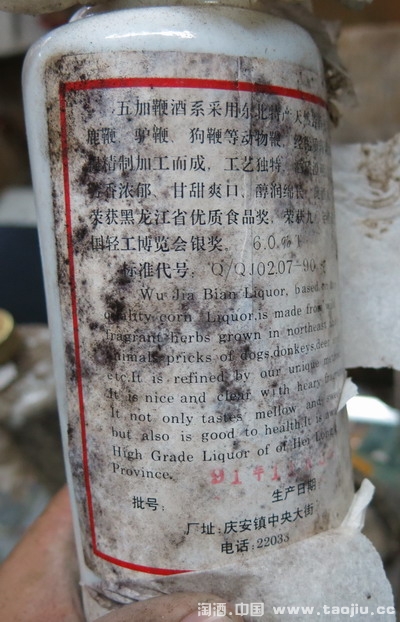 五加鞭酒系采用东北特产天
鹿鞭 驴鞭 狗鞭等动物鞭,
精制加工而成,工艺独特,
香浓郁,甘甜爽口,醇润绵长,
荣获黑龙江省优质食品奖,荣获九
国轻工博览会银奖, 60.
标准代号:Q/QJ02.07-90
Wu Jia Bian Liquor, based
quality corn Liquor.is made from
fragrant herbs grown in northeast
animals pricks of dogs,donkeys,deer
etc.It is refined by our unique
It is nice and clear with heavy
It not only tastes mellow and
but also is good to health.It is
High Grade Liquor of of Hei Long
Province.
91年1
批号: 生产日期
厂址:庆安镇中央大街
电话:22035
淘酒.中国 www.taojiu.cc